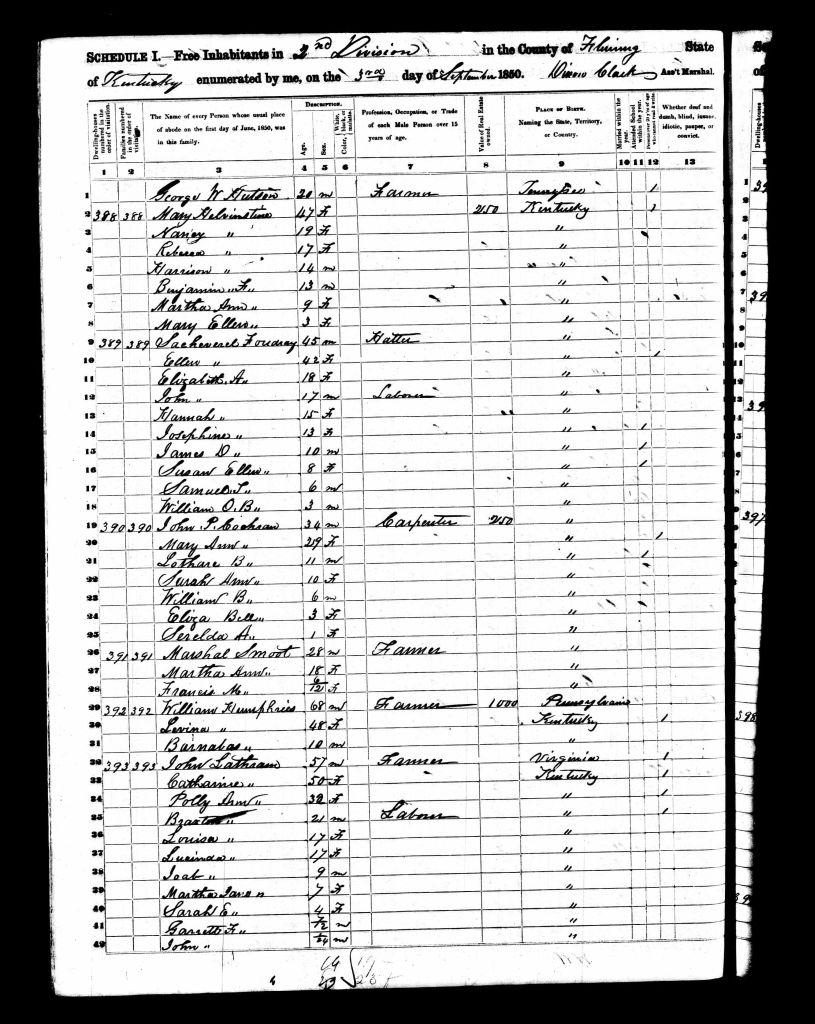 SCHEDULE I.—Free Inhabitants in 2nd Division in the County of Fleming State
of Kentucky enumerated by me, on the 3rd day of September 1850. Clark Ass't Marshal.
Dwelling-houses numbered in the order of visitation. Families numbered in the order of visitation. The Name of every Person whose usual place of abode on the first day of June, 1850, was in this family. DESCRIPTION. Age. Sex. Color, White, black, or mulatto. Profession, Occupation, or Trade of each Male Person over 15 years of age. Value of Real Estate owned. PLACE OF BIRTH. Naming the State, Territory, or Country. Married within the year. Attended School within the year. Persons over 20 y'rs of age who cannot read & write. Whether deaf and dumb, blind, insane, idiotic, pauper, or convict.
1 2 3 4 5 6 7 8 9 10 11 12 13
1 George W Hutson 20 m Farmer Tennessee 1
2 388 388 Mary Helvinstine 47 F 250 Kentucky 1
3 Nancy " 19 F "
4 Rebecca " 17 F "
5 Harrison " 14 m "
6 Benjamin F. " 13 m "
7 Martha Ann " 9 F "
8 Mary Ellen " 3 F "
9 389 389 Sacheveral Foudray 45 m Hatter "
10 Ellen " 42 F " 1
11 Elizabeth A " 18 F "
12 John " 17 m Laborer "
13 Hannah " 15 F "
14 Josephine " 13 F " 1
15 James D " 10 m " 1
16 Susan Ellen " 8 F " 1
17 Samuel T " 6 m "
18 William O.B " 3 m "
19 390 390 John P. Cochran 34 m Carpenter 250 "
20 Mary Ann " 29 F " 1
21 Lothare B " 11 m " 1
22 Sarah Ann " 10 F "
23 William B " 6 m "
24 Eliza Bell " 3 F "
25 Serelda A " 1 F "
26 391 391 Marshal Smoot 28 m Farmer "
27 Martha Ann " 18 F "
28 Francis M " 6/12 F "
29 392 392 William Humphries 68 m Farmer 1000 Pennsylvania
30 Levina " 48 F Kentucky 1
31 Barnabas " 10 m "
32 393 393 John Lathram 57 m Farmer Virginia 1
33 Catharine " 50 F Kentucky 1
34 Polly Ann " 32 F " 1
35 Braxton " 21 m Laborer " 1
36 Louisa " 17 F "
37 Lucinda " 17 F "
38 Joab " 9 m "
39 Martha Jane " 7 F "
40 Sarah E " 4 F "
41 Garrett F " m "
42 John " m "
19
23